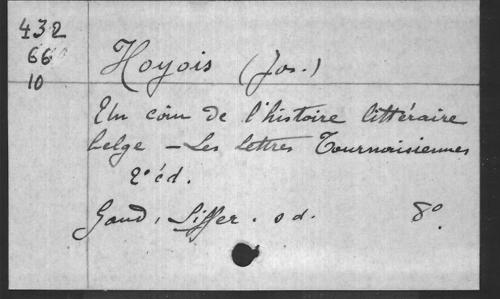 432
66
10
Hoyois (Jos.)
Un coin de l'histoire littéraire
belge - Les lettres Tournaisiennes
2e éd.
Gand, Siffer. s d. 8o